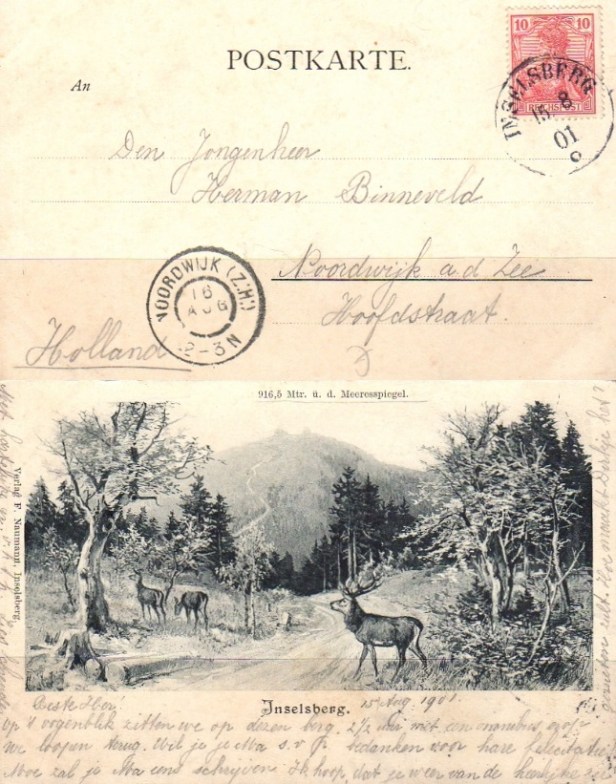 POSTKARTE.
An
10 10
REICHSPOST
INSELSBERG
15 8
01
Den Jongenheer
Herman Binneveld
Noordwijk a.d. Zee
Hoofdstraat.
Holland
NOORDWIJK (Z:H:)
16
AUG
2-3N
916,5 Mtr. ü. d. Meeresspiegel.
Verlag F. Naumann, Inselsberg.
Inselsberg.
15 Aug. 1901.
Beste Her!
op 't oogenblik zitten we op dezen berg. 2½ uur met een omnibus
We loopen terug. Wil je je Ma s.v.p. bedanken voor hare felicitatie
Moe zal je Ma eens schrijven. Ik hoop, dat je weer van de